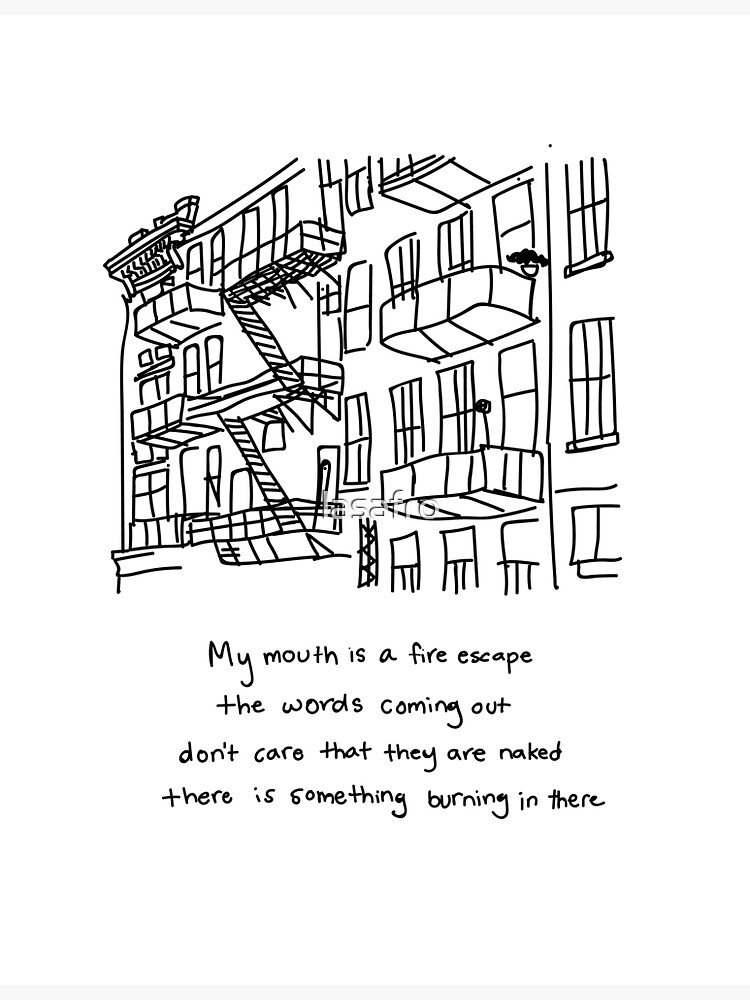 lasafro
My mouth is a fire escape
the words coming out
don't care that they are naked
there is something burning in there